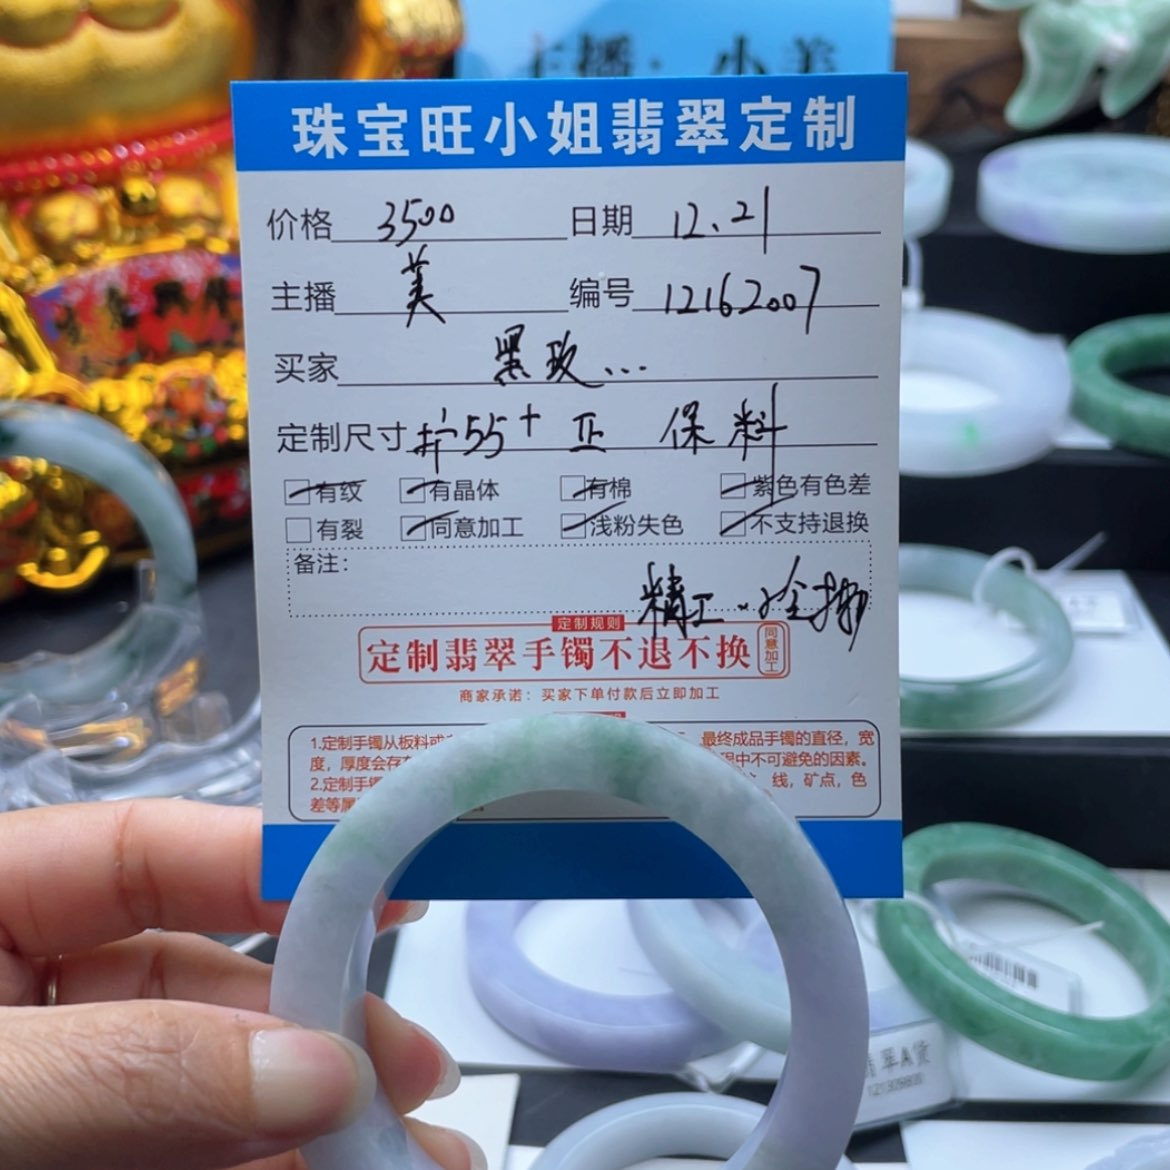 主播：小美
珠宝旺小姐翡翠定制
价格 3500 日期 12.21
主播 美 编号 12162007
买家 黑玫...
定制尺寸 55+ 正 保料
有纹 有晶体 有棉 紫色有色差
有裂 同意加工 浅粉失色 不支持退换
备注：
精工
定制规则
定制翡翠手镯不退不换 同意加工
商家承诺：买家下单付款后立即加工
1.定制手镯从板料或 最终成品手镯的直径，宽
度，厚度会存 程中不可避免的因素。
2.定制手镯 线，矿点，色
差等属
翡翠A货